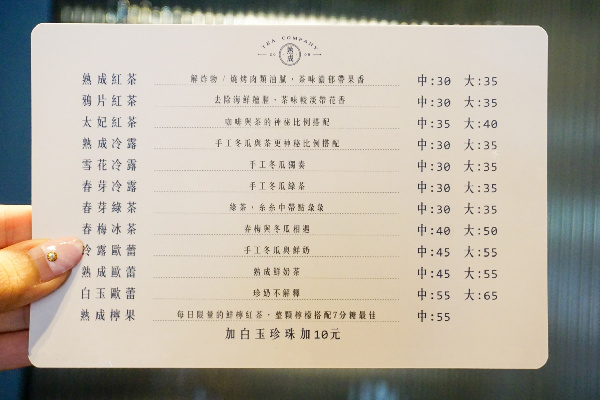 TEA COMPANY
熟成
熟成紅茶 解炸物/燒烤肉類油膩,茶味濃郁帶果香 中:30 大:35
鴉片紅茶 去除海鮮羶腥,茶味較淡帶花香 中:30 大:35
太妃紅茶 咖啡與茶的神秘比例搭配 中:35 大:40
熟成冷露 手工冬瓜與茶更神秘比例搭配 中:30 大:35
雪花冷露 手工冬瓜獨奏 中:30 大:35
春芽冷露 手工冬瓜綠茶 中:30 大:35
春芽綠茶 綠茶,糸糸中帶點彔彔 中:30 大:35
春梅冰茶 春梅與冬瓜相遇 中:40 大:50
冷露歐蕾 手工冬瓜與鮮奶 中:45 大:55
熟成歐蕾 熟成鮮奶茶 中:45 大:55
白玉歐蕾 珍奶不解釋 中:55 大:65
熟成檸果 每日限量的鮮檸紅茶,整顆檸檬搭配7分糖最佳 中:55
加白玉珍珠加10元